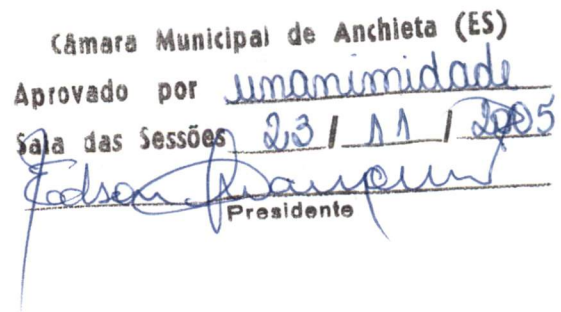 Câmara Municipal de Anchieta (ES)
Aprovado por unanimidade
Sala das Sessões 23 / 11 / 2005
Edson
Presidente